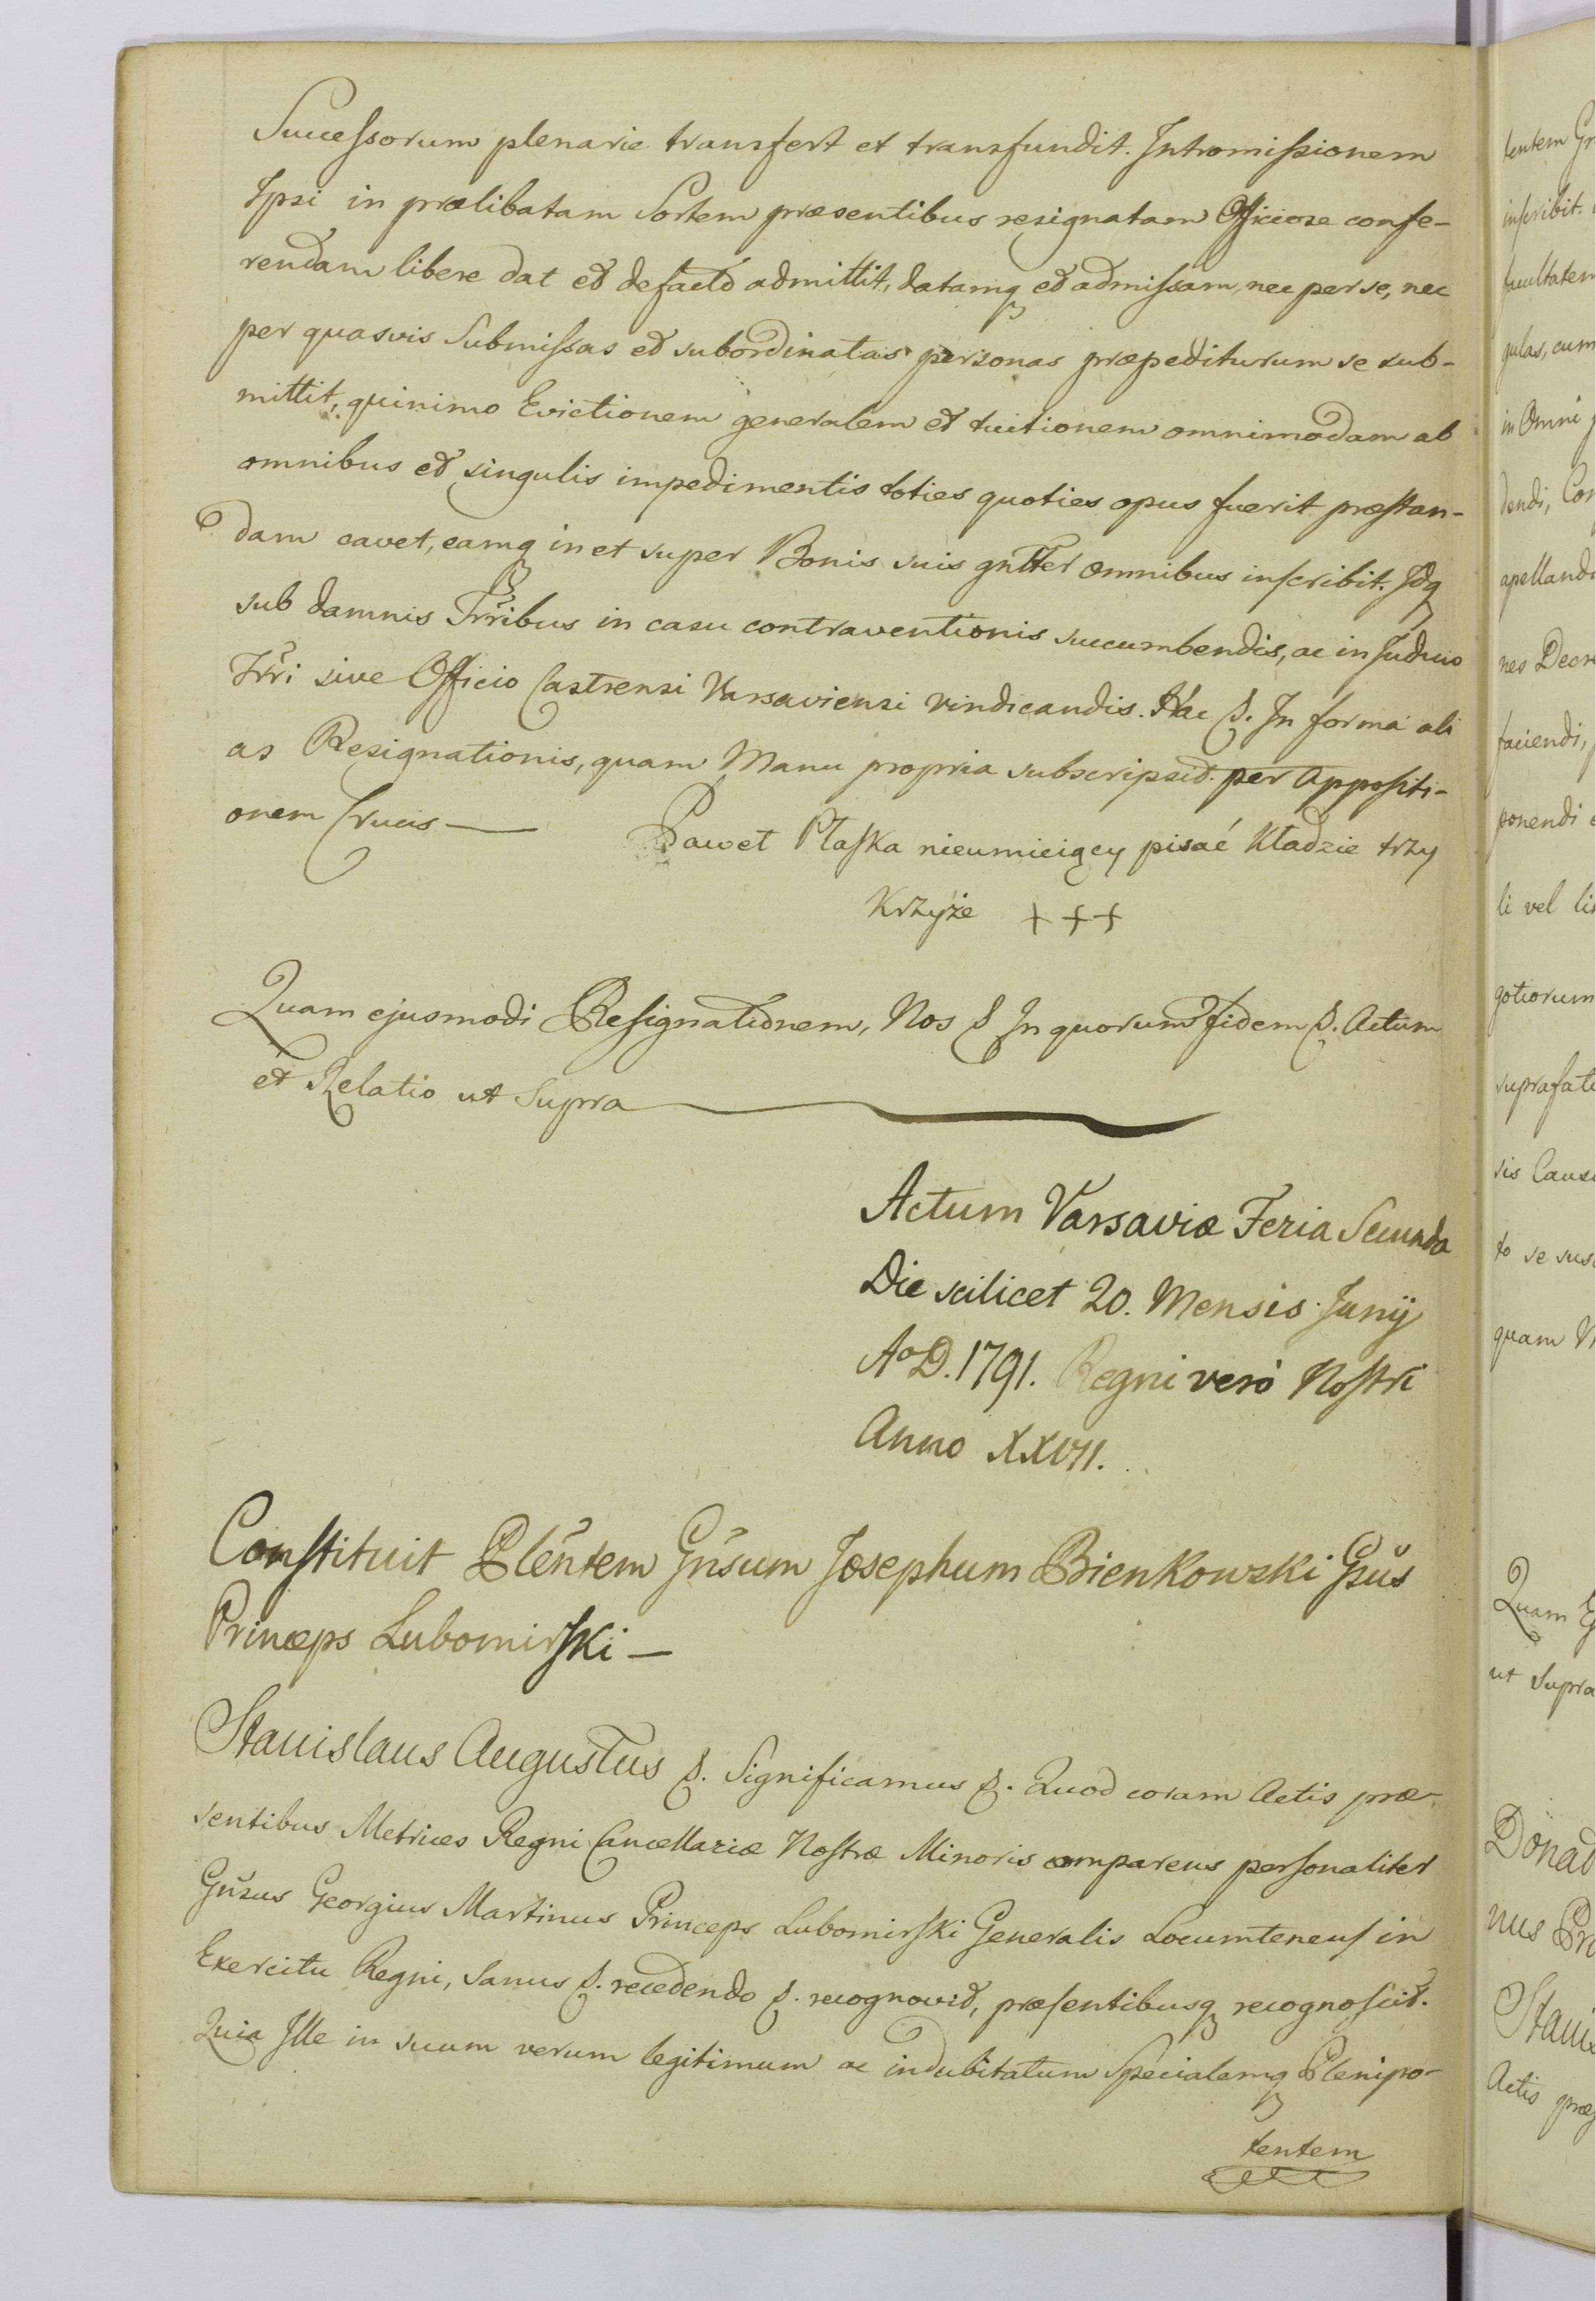 Successorum plenarie transfert et transfundit. Intromissionem
Ipsi in prælibatam Sortem præsentibus resignatam Officiose confe-
rendam libere dat et defacto admittit, datamq et admissam, nec per se, nec
per quasvis Submissas et subordinatas personas præpediturum se sub-
mittit, quinimo Evictionem generalem et tuitionem omnimodam ab
omnibus et singulis impedimentis toties quoties opus fuerit præstan-
dam cavet, eamq in et super Bonis suis gnlter omnibus inscribit. Idq
sub damnis Trribus in casu contraventionis succumbendis, ac in Judicio
Trri sive Officio Castrensi Varsaviensi vindicandis. Hac &. In forma ali
as Resignationis, quam Manu propria subscripsit. per Appositi-
onem Crucis —
Paweł Płaska nieumieiący pisać kładzie trzy
Krzyże + + +
Quam ejusmodi Resignationem, Nos & In quorum fidem &. Actum
et Relatio ut Supra
Actum Varsaviæ Feria Secunda
Die scilicet 20. Mensis Junij
Ao D. 1791. Regni verò Nostri
Anno XXVII.
Constituit Plentem Gnsum Josephum Bienkowski Gsus
Princeps Lubomirski —
Stanislaus Augustus &. Significamus &. Quod coram Actis præ-
sentibus Metrices Regni Cancellariæ Nostræ Minoris comparens personaliter
Gnsus Georgius Martinus Princeps Lubomirski Generalis Locumtenens in
Exercitu Regni, Sanus &. recedendo &. recognovit, præsentibusq recognoscit.
Quia Ille in suum verum legitimum ac indubitatum Specialemq Plenipo-
tentem